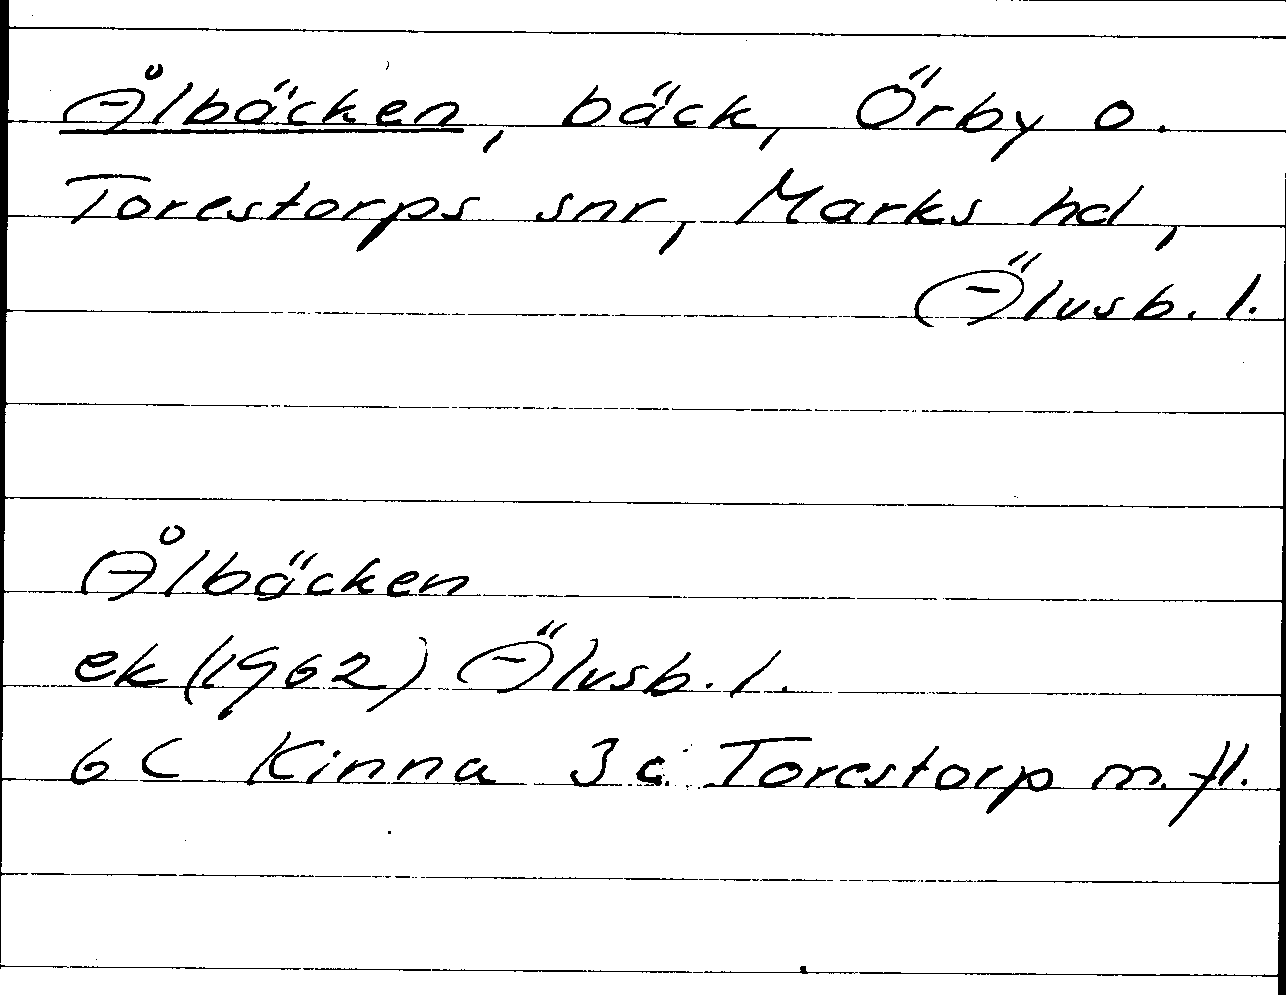 Ålbäcken, bäck, Örby o.
Torestorps snr, Marks hd,
Älvsb. l.
Ålbäcken
ek (1962) Älvsb. l.
6 C Kinna 3 c Torestorp m. fl.